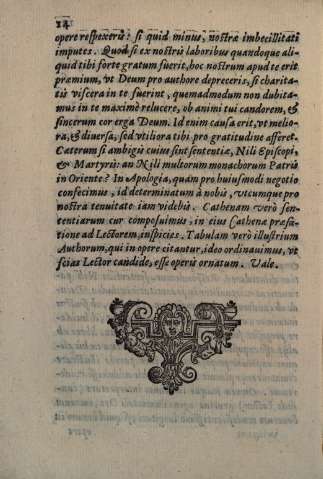 14
opere respexeris: si quid minus, nostræ imbecillitati
imputes. Quod si ex nostris laboribus quandoque ali-
quid tibi forte gratum fuerit, hoc nostrum apud te erit
præmium, vt Deum pro authore depreceris, si charita-
tis viscera in te fuerint, quemadmodum non dubita-
mus in te maximè relucere, ob animi tui candorem, &
sincerum cor erga Deum. Id enim causa erit, vt melio-
ra, & diuersa, sed vtiliora tibi pro gratitudine afferet.
Cæterum si ambigis cuius sint sententiæ, Nili Episcopi,
& Martyris: an Nili multorum monachorum Patris
in Oriente? In Apologia, quam pro huiusmodi negotio
confecimus, id determinatum à nobis, vtcumque pro
nostra tenuitate iam videbis. Cathenam verò sen-
tentiarum cur composuimus, in eius Cathenæ præfa-
tione ad Lectorem, inspicias. Tabulam verò illustrium
Authorum, qui in opere citantur, ideo ordinauimus, vt
scias Lector candide, esse operis ornatum. Vale.